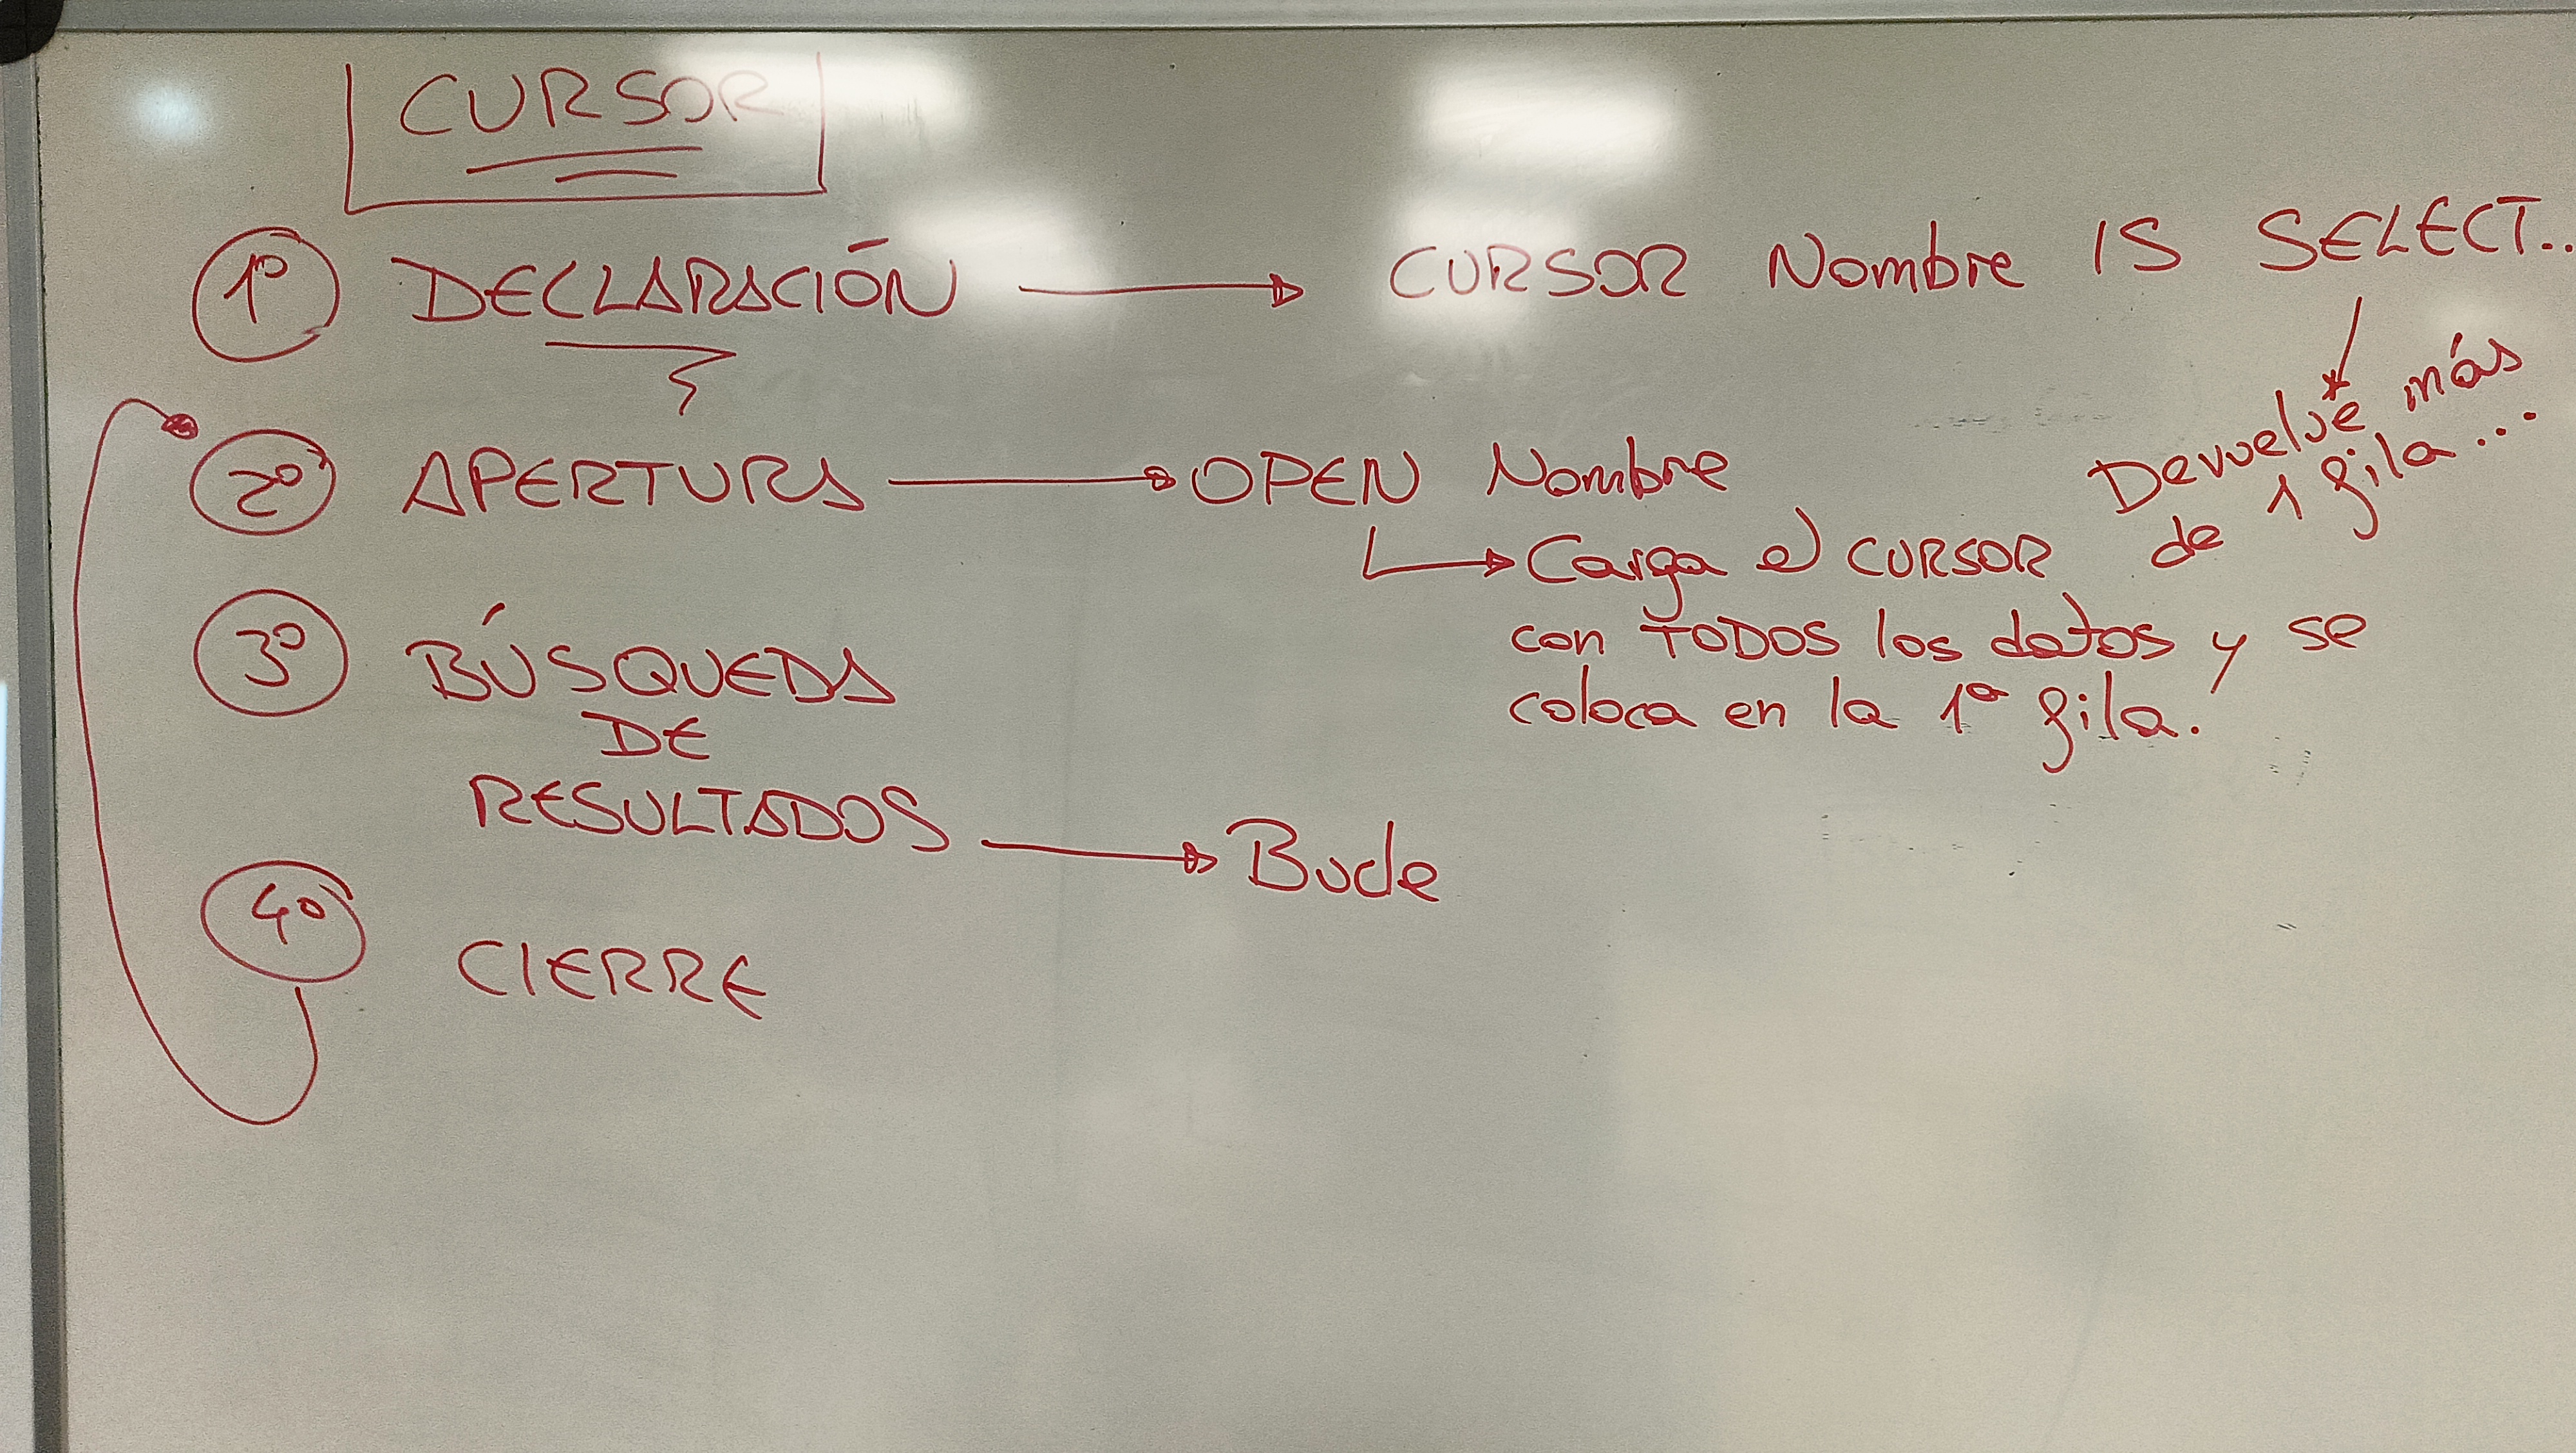 CURSOR
1º DECLARACIÓN → CURSOR Nombre IS SELECT..
Devuelve más
de 1 fila...
2º APERTURA → OPEN Nombre
Carga el CURSOR
con TODOS los datos y se
coloca en la 1ª fila.
3º BÚSQUEDA
DE
RESULTADOS → Bucle
4º CIERRE